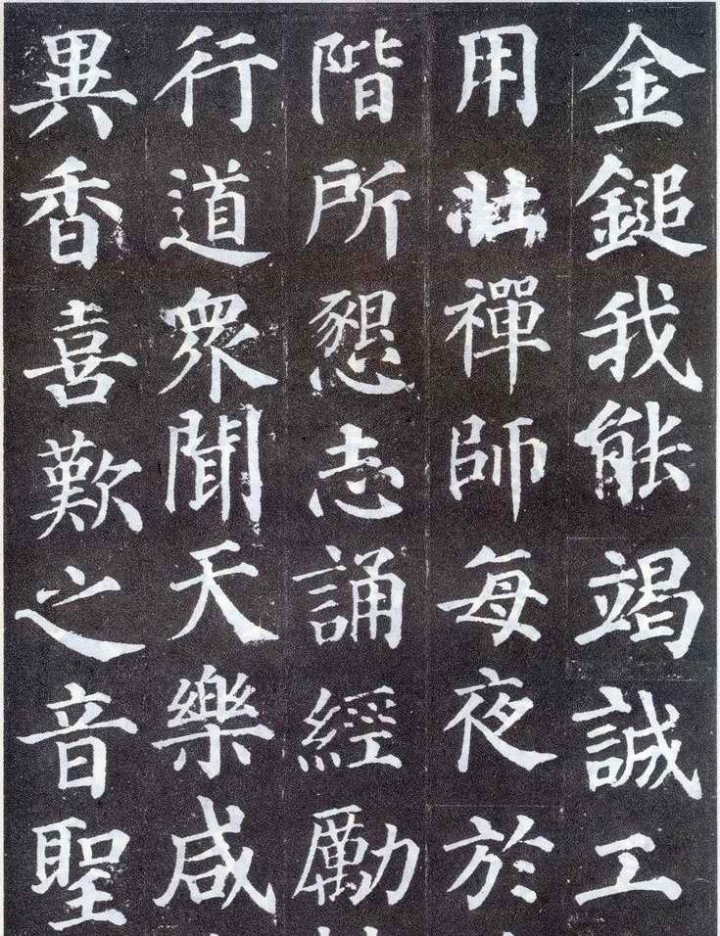 金鎚我能竭誠工
用壯禪師每夜於
階所懇志誦經勵
行道衆聞天樂咸
異香喜歎之音聖